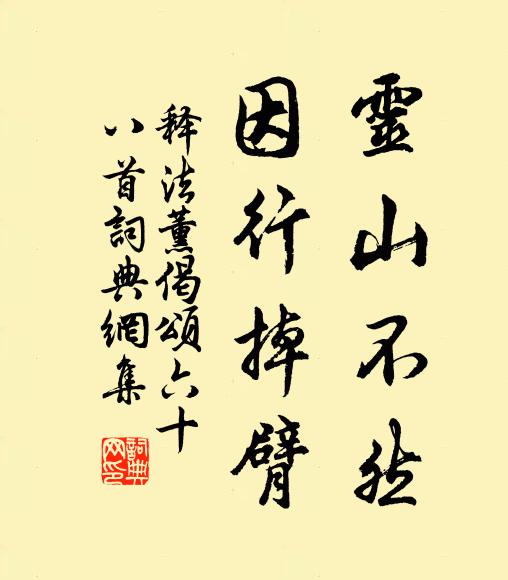 靈山不然
因行掉臂
释法薰偈頌六十
八首詞典網集
詞典网印